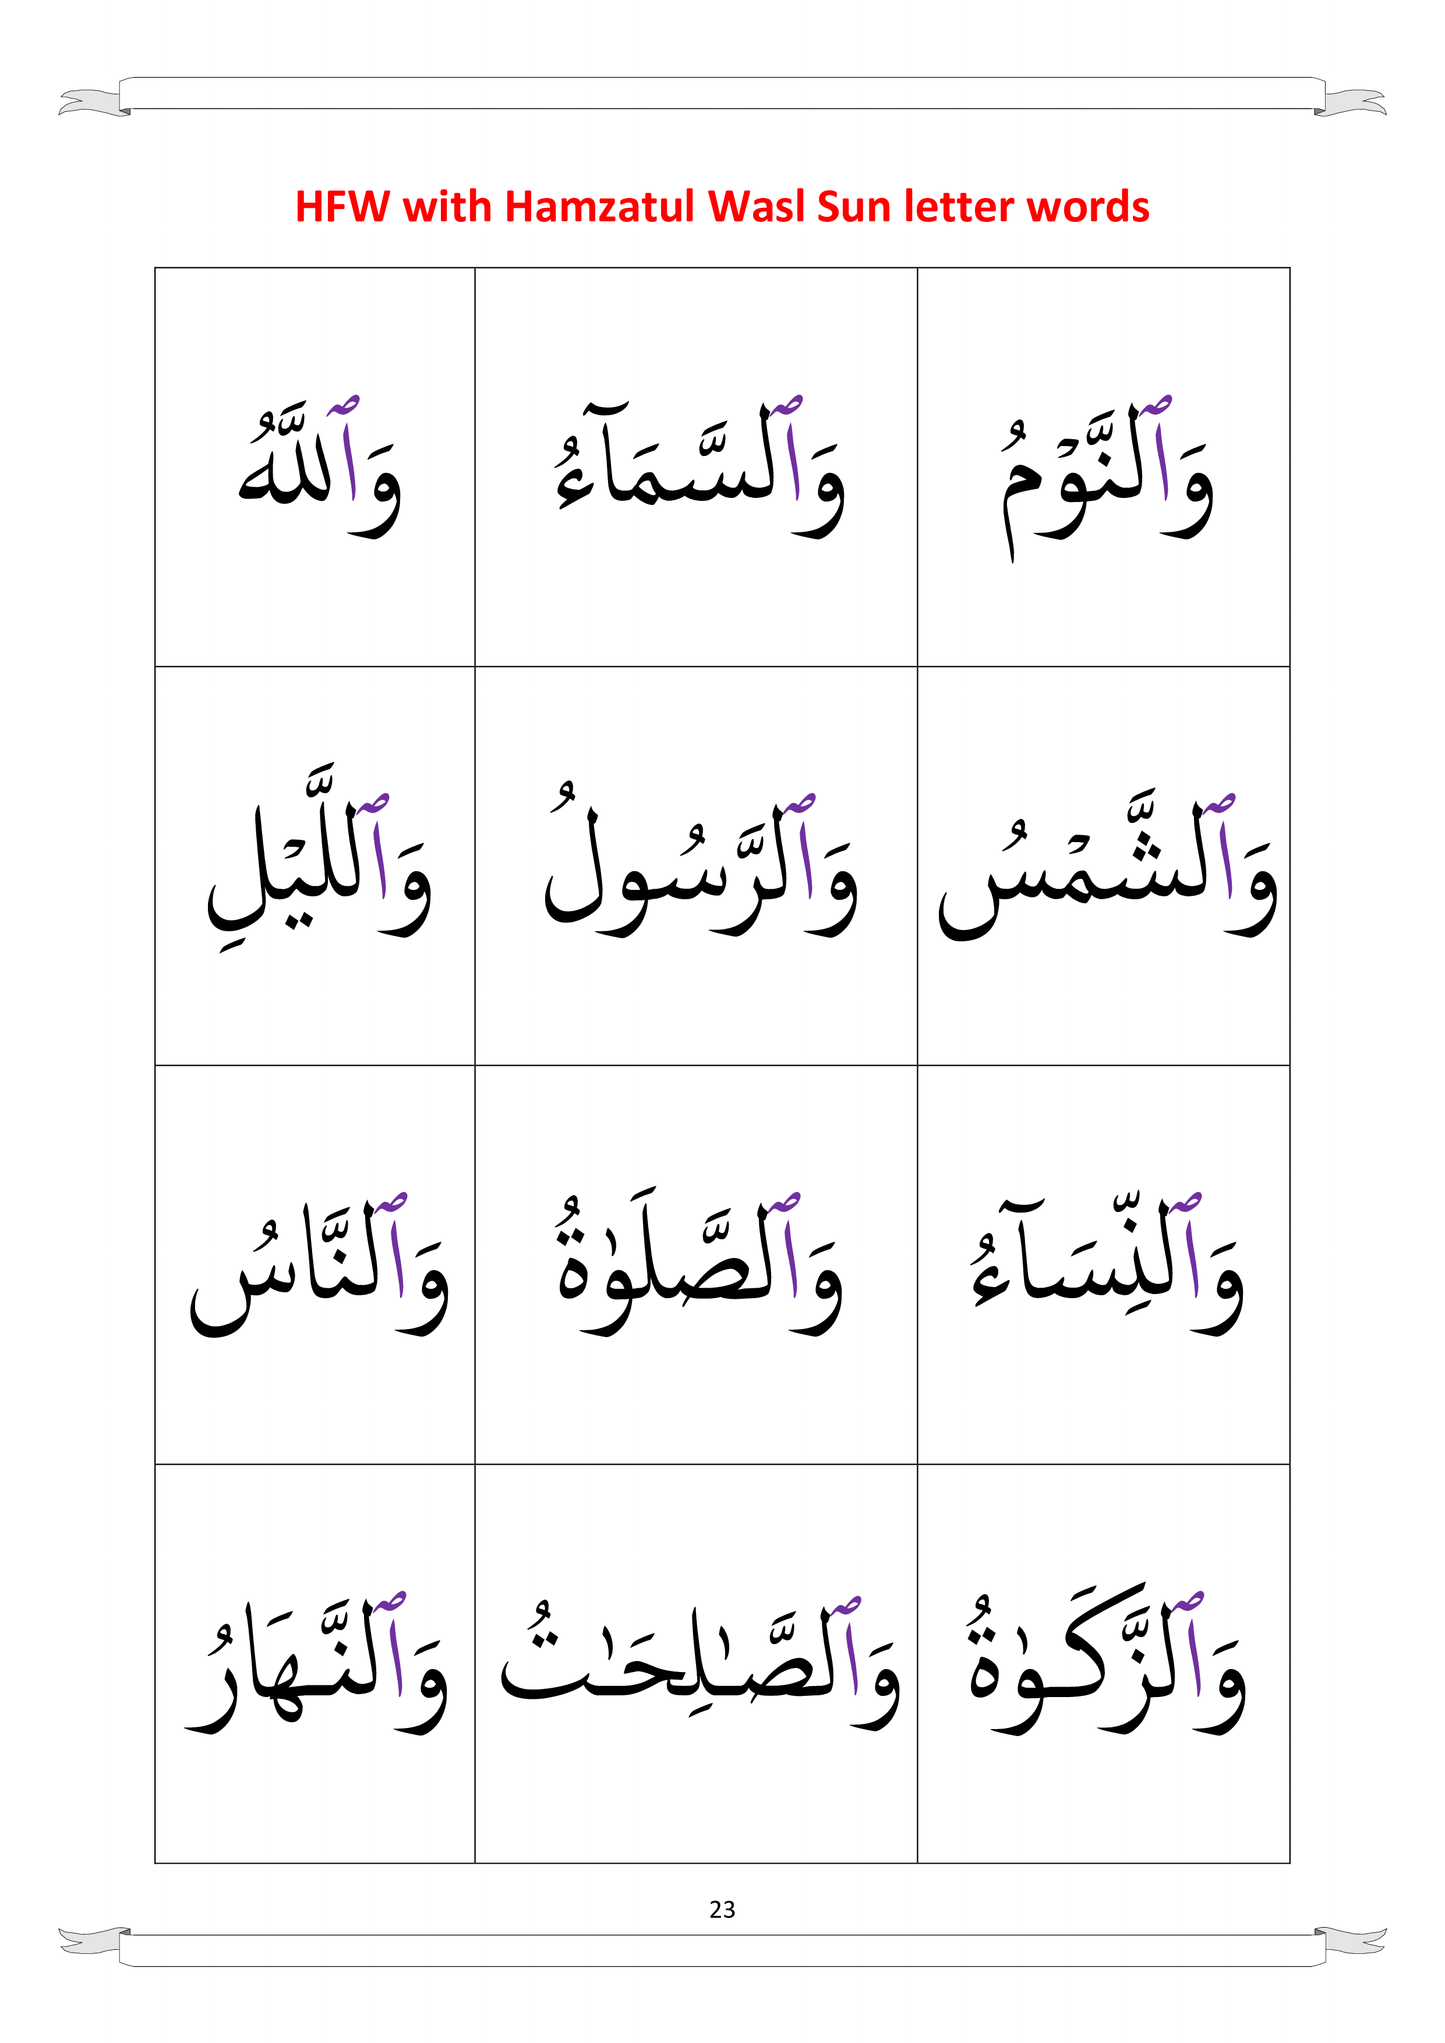 HFW with Hamzatul Wasl Sun letter words
وَٱلنَّوْمُ وَٱلسَّمَآءُ وَٱللَّهُ
وَٱلشَّمْسُ وَٱلرَّسُولُ وَٱللَّيْلِ
وَٱلنِّسَآءُ وَٱلصَّلَوٰةُ وَٱلنَّاسُ
وَٱلزَّكَوٰةُ وَٱلصَّـٰلِحَـٰتُ وَٱلنَّـهَارُ
23